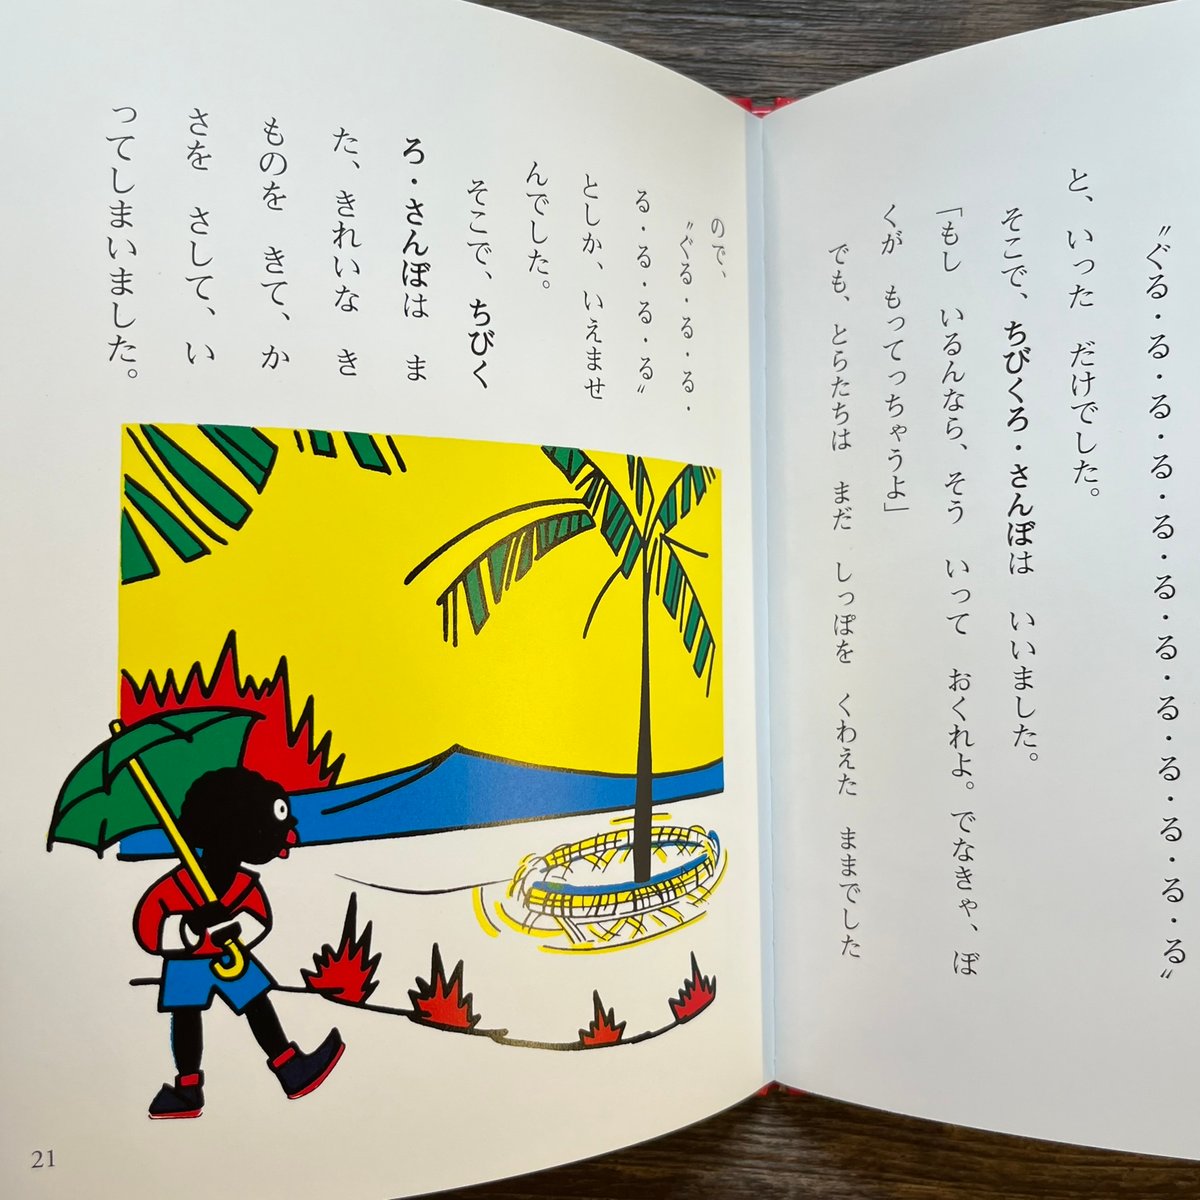 〝ぐる・る・る・る・る・る・る・る・る・る・る・る・る〟
と、いった だけでした。
そこで、ちびくろ・さんぼは いいました。
「もし いるんなら、そう いって おくれよ。でなきゃ、ぼ
くが もってっちゃうよ」
でも、とらたちは まだ しっぽを くわえた ままでした
ので、
〝ぐる・る・る・
る・る・る・る〟
としか、いえませ
んでした。
そこで、ちびく
ろ・さんぼは ま
た、きれいな き
ものを きて、か
さを さして、い
ってしまいました。
21